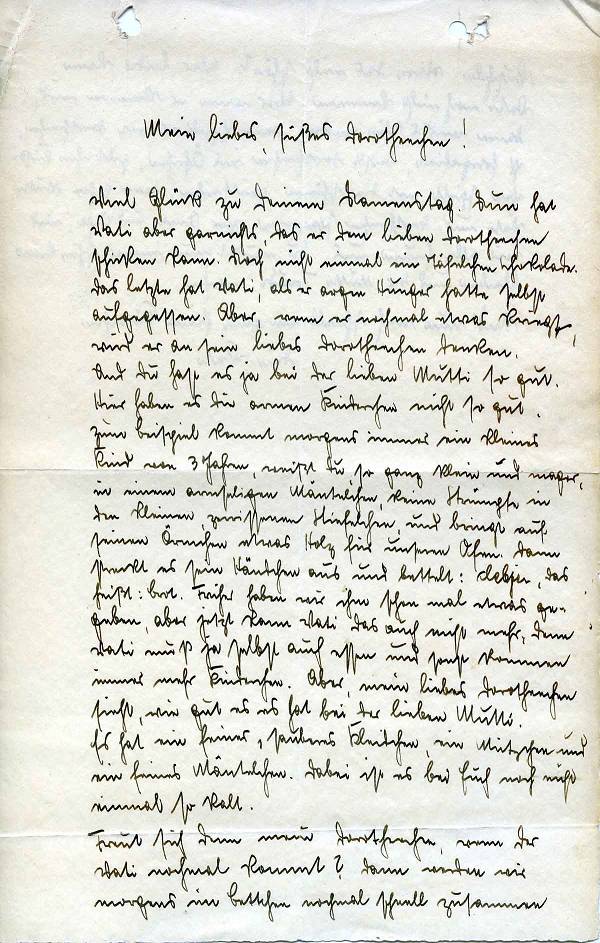 Mein liebes, süßes Dorotheechen!
Viel Glück zu Deinem Namenstag. Nun hat
Vati aber garnichts, das er dem lieben Dorotheechen
schicken kann. Noch nicht einmal ein Täfelchen Schokolade.
Das letzte hat Vati, als er argen Hunger hatte selbst
aufgegessen. Aber, wenn er nochmal etwas kriegt,
wird er an sein liebes Dorotheechen denken.
Und Du hast es ja bei der lieben Mutti so gut.
Hier haben es die armen Kinderchen nicht so gut.
Zum beispiel kommt morgens immer ein kleines
Kind von 3 Jahren, weißt Du so ganz klein und mager,
in einem armseligen Mäntelchen, keine Strümpfe in
den kleinen, zerrissenen Stiefelchen, und bringt auf
seinen Ärmchen etwas Holz für unseren Ofen. Dann
streckt es sein Händchen aus und bettelt: Clebjen, das
heißt: brot. Früher haben wir ihm schon mal etwas ge-
geben, aber jetzt kann Vati das auch nicht mehr, denn
Vati muß ja selbst auch essen und sonst kommen
immer mehr Kinderchen. Aber, mein liebes Dorotheechen
sieht, wie gut es es hat bei der lieben Mutti.
Es hat ein feines, sauberes Kleidchen, ein Mützchen und
ein feines Mäntelchen. Dabei ist es bei Euch noch nicht
einmal so kalt.
Freut sich denn mein Dorotheechen, wenn der
Vati nochmal kommt? Dann werden wir
morgens im bettchen nochmal schnell zusammen